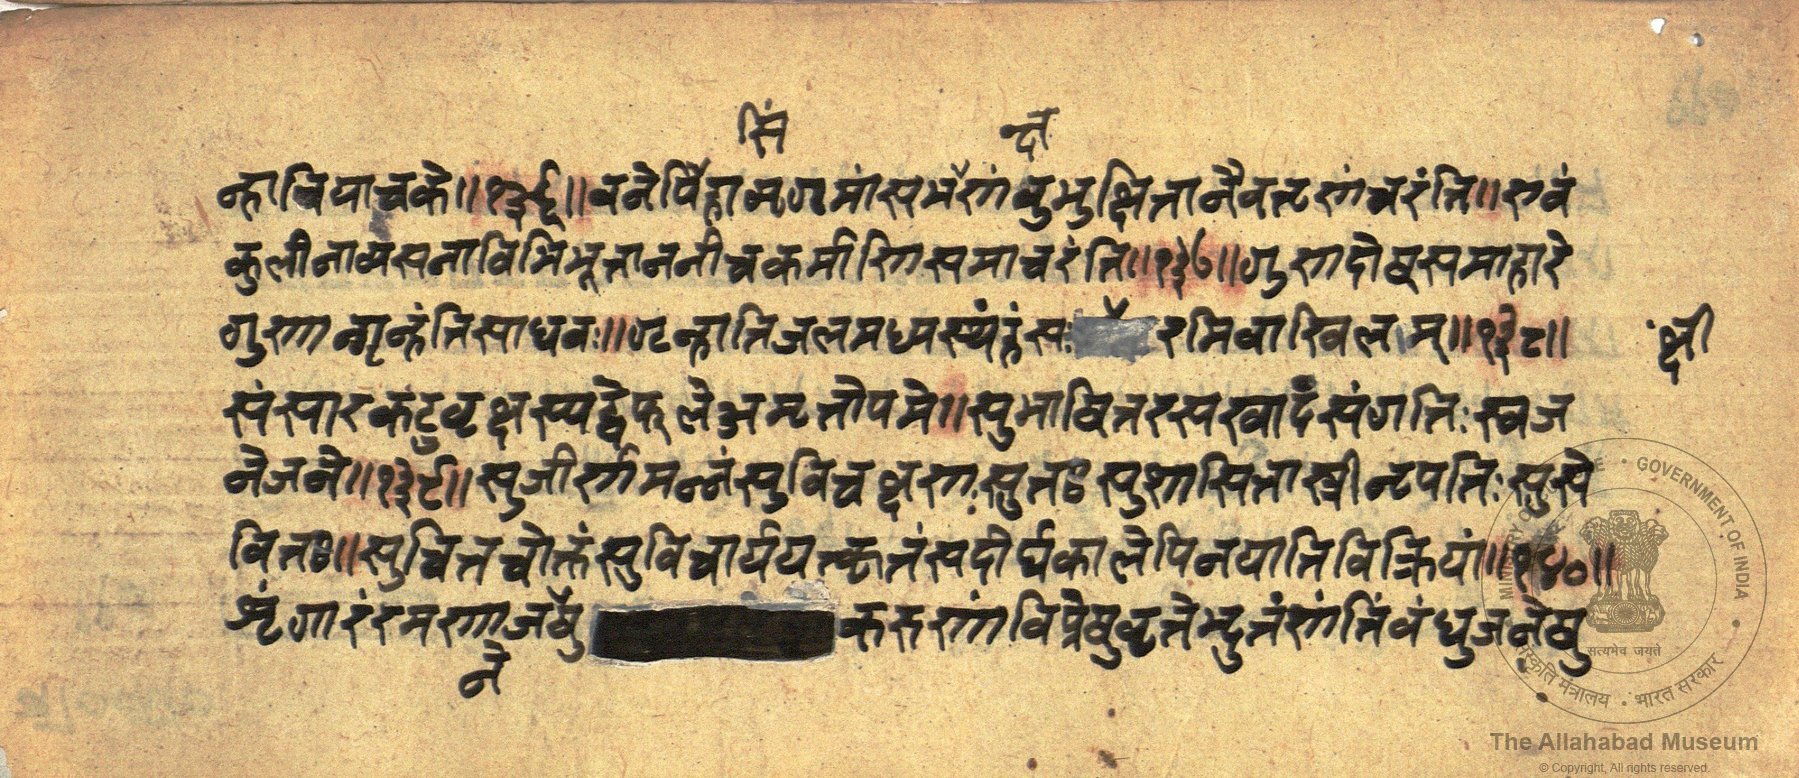 सिं क्ष
न्हावियाचके॥१३६॥वनेपिंहामृगमांसभरणंबुभुक्षितानैवतृणंचरंति॥एवं
कुलीनाव्यसनाविभिभूताननीचकर्माणिसमाचरंति॥१३७॥गुणदोषसमाहारे
गुणान्गृन्हंतिसाधवः॥गृन्हातिजलमध्यस्यंहंसः रमिवाखिलम्॥१३८॥ क्षी
संसारकटुवृक्षस्यद्वेफलेअमृतोपमे॥सुभाषितरसस्वादंसंगतिःस्वज
नेजने॥१३९॥सुजीर्णमन्नंसुविचक्षणःसुतःसुशासितास्त्रीनृपतिःसुसे
वितः॥सुचिंतचोक्तंसुविचार्ययत्कृतंसदीर्घकालेपिनयातिविक्रियां॥१४०॥
शृंगारंरमरणाजषु करुरणंविप्रेषुवृत्तेभ्दुतंराांतिंबंधुजनेषु
ने
MINISTRY OF CULTURE • GOVERNMENT OF INDIA
सत्यमेव जयते
संस्कृति मंत्रालय • भारत सरकार
The Allahabad Museum
© Copyright, All rights reserved.